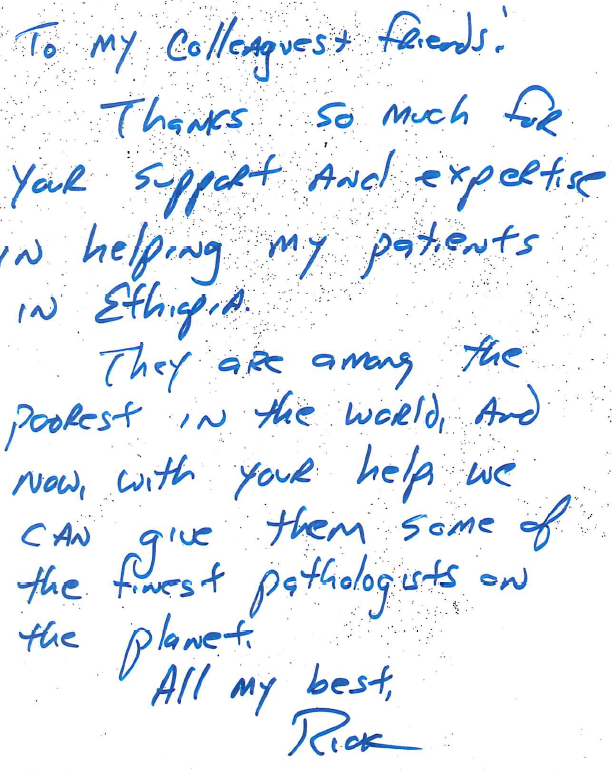 To my Colleagues + friends:
Thanks so much for
your support and expertise
in helping my patients
in Ethiopia.
They are among the
poorest in the world, and
now, with your help we
can give them some of
the finest pathologists on
the planet.
All my best,
Rick